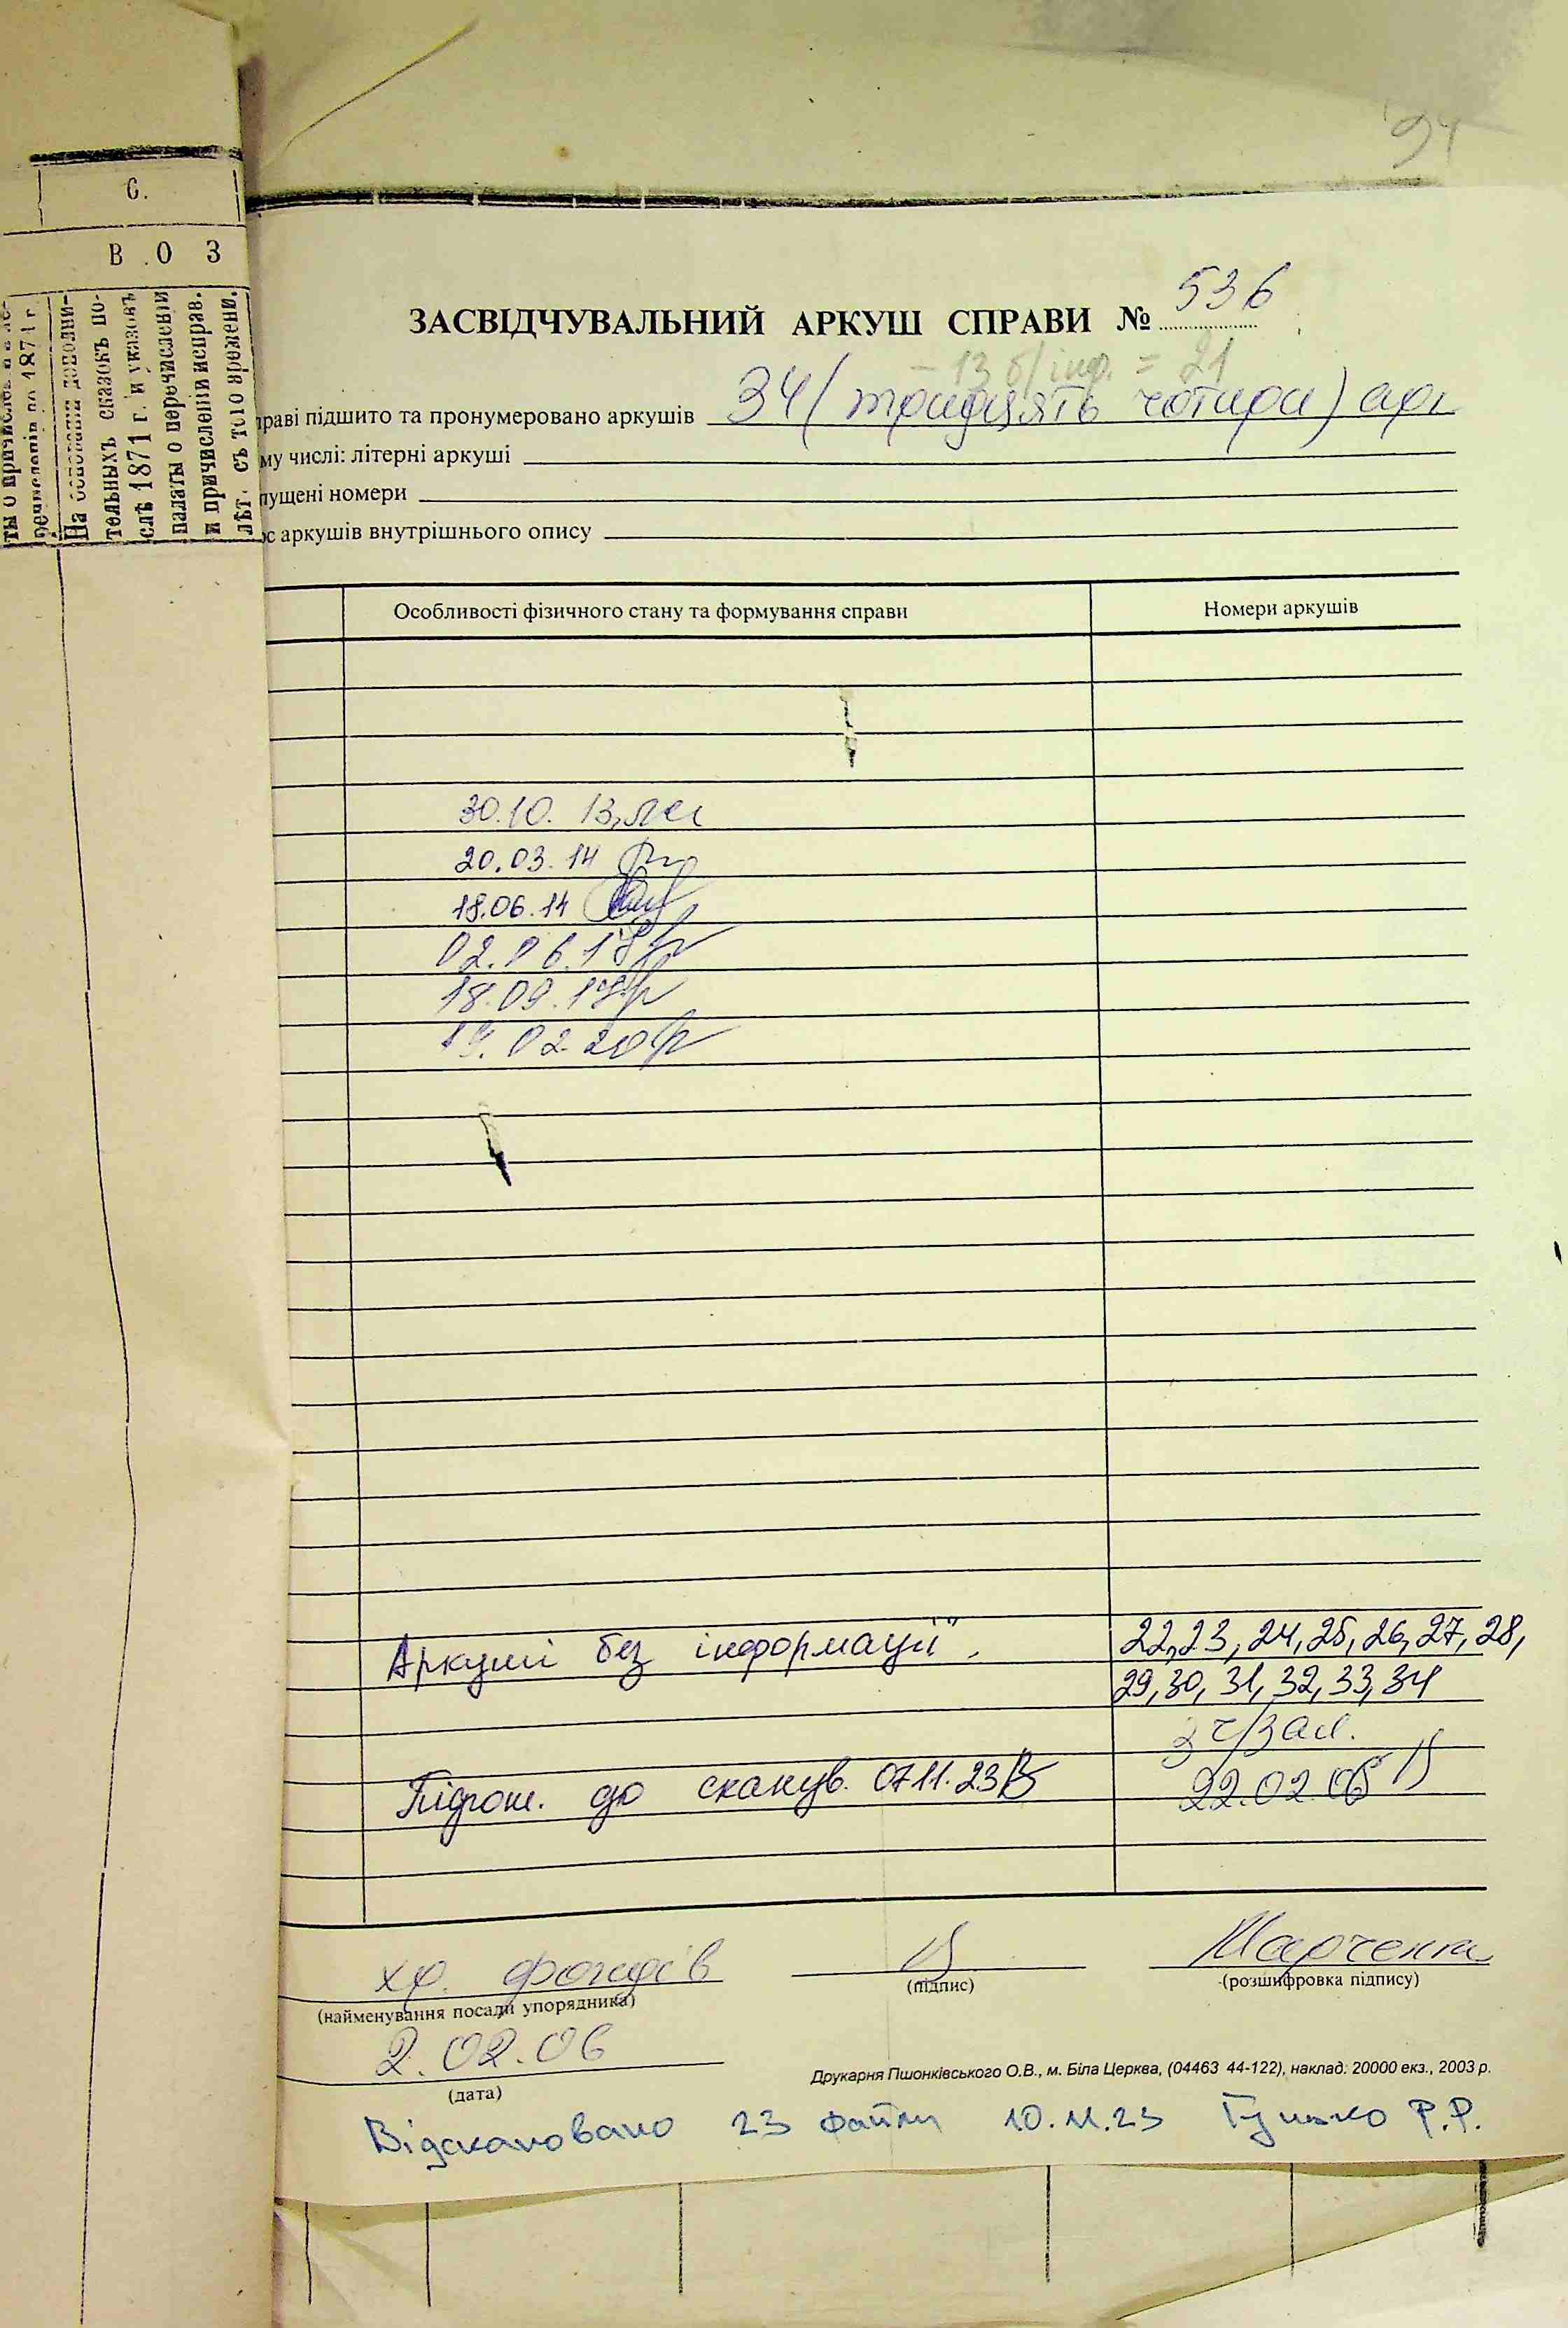 94
С.
В О З
На основании дополни-
тельныхъ сказокъ по-
слѣ 1871 г. и указовъ
палаты о перечисленіи
и причисленіи исправ.
лѣт. съ того времени.
ЗАСВІДЧУВАЛЬНИЙ АРКУШ СПРАВИ № 536
- 13 б/інф. = 21
праві підшито та пронумеровано аркушів 34 (тридцять чотири) арк
му числі: літерні аркуші
пущені номери
юс аркушів внутрішнього опису
Особливості фізичного стану та формування справи Номери аркушів
30.10.13,
20.03.14
18.06.14
02.06.17
18.09.17
19.02.20
Аркуші без інформації". 22,23,24,25,26,27,28,
29,30,31,32,33,34
з ч/зал.
Підгот. до сканув. 07.11.23 22.02.06
хр. фондів Марченко
(найменування посади упорядника) (підпис) (розшифровка підпису)
2.02.06
(дата)
Друкарня Пшонківського О.В., м. Біла Церква, (04463 44-122), наклад: 20000 екз., 2003 р.
Відскановано 23 файли 10.11.23 Гунько Р.Р.